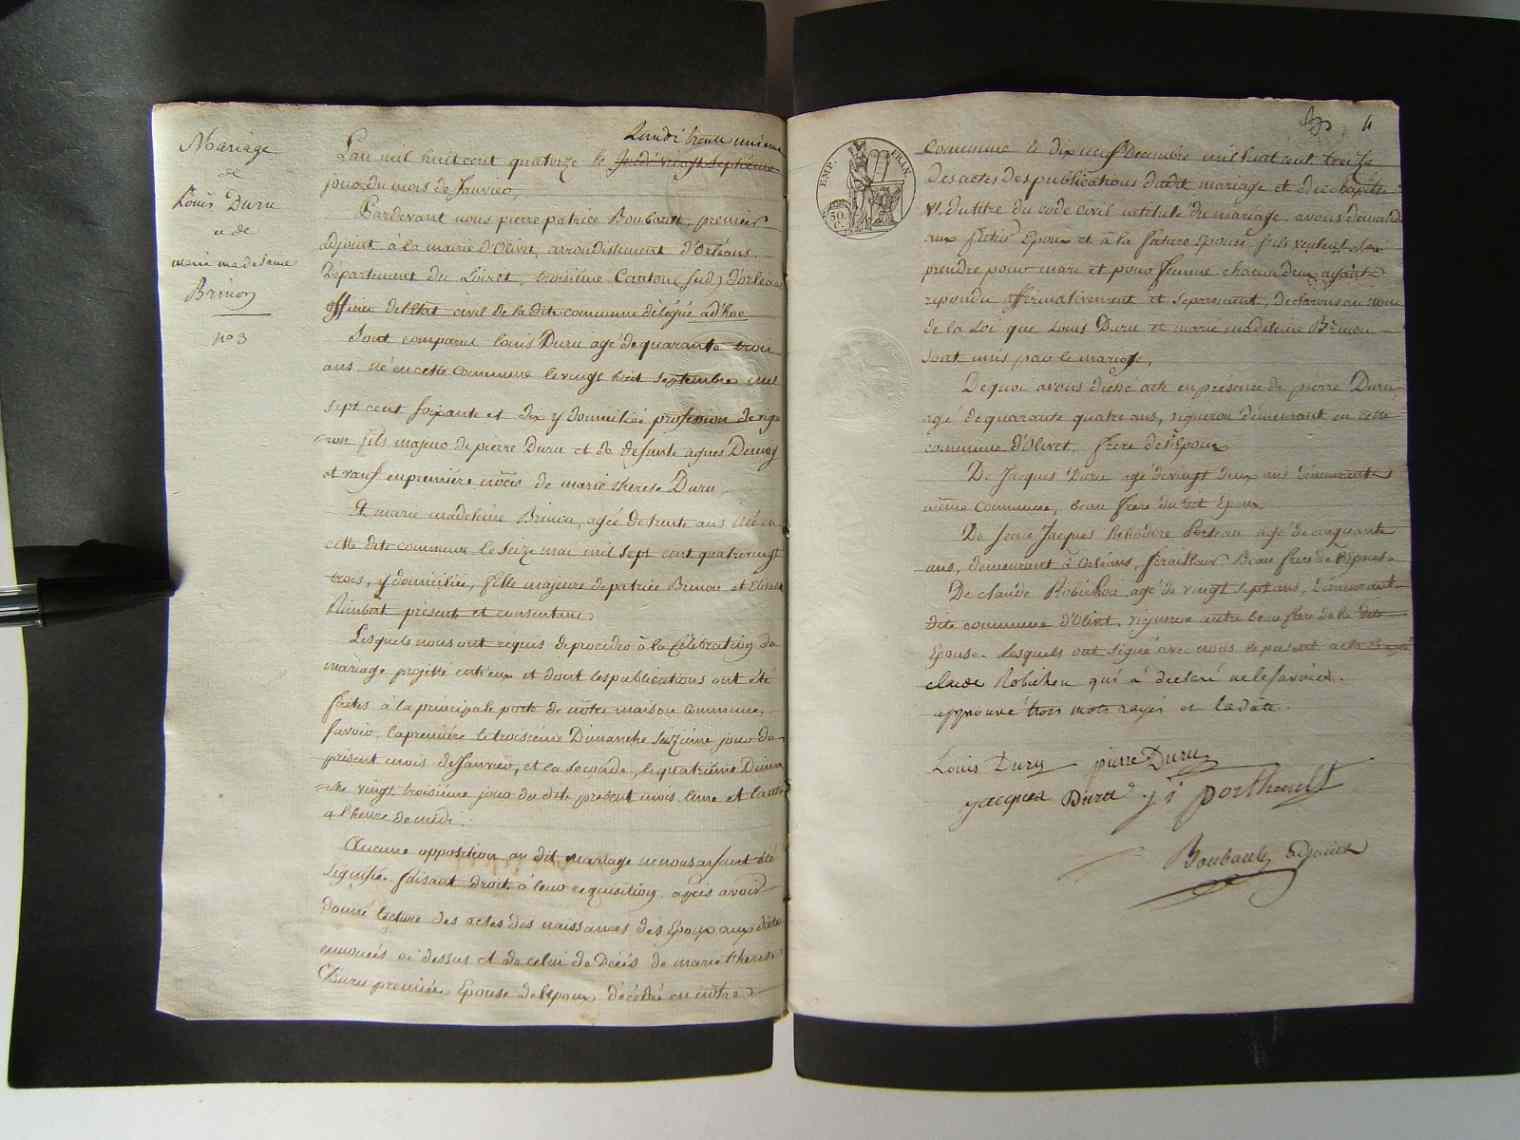 Mariage
de
Louis Duru
et de
marie madelaine
Brinon
n° 3
Lundi trente unieme
L'an mil huit cent quatorze le Jeudi vingt septieme
jour du mois de Janvier,
Pardevant nous pierre patrice Boubault, premier
adjoint à la mairie d'Olivet, arrondissement d'Orléans,
Département du Loiret, troisième Canton (sud) d'orléans
officier de l'état civil de la dite commune délégué ad'hoc
Sont comparus louis Duru agé de quarante trois
ans, né en cette commune le vingt huit septembre mil
sept cent soixante et dix y domicilié profession de vigne
ron fils majeur de pierre Duru et de défunte agnes
et veuf en première nôces de marie therese Duru
Et marie madeleine Brinon, agée de trente ans née en
cette dite commune le seize mai mil sept cent quatrevingt
trois, y domiciliée, fille majeure de patrice Brinon et
Rimbert présents et consentans
Lesquels nous ont requis de procéder à la Célébration du
mariage projetté entr'eux et dont les publications ont été
faites à la principale porte de nôtre maison commune,
savoir, la première le troisième Dimanche seizième jour du
présent mois de Janvier, et la seconde, le quatrième Diman
che vingt troisième jour du dit présent mois l'une et l'autre
a l'heure de midi.
Aucune opposition au dit mariage ne nous ayant été
signifiée faisant droit à leur requisition, après avoir
donné lecture des actes des naissances des Epoux aux dates
enoncées ci dessus et de celui de Décès de marie therese
Duru première Epouse de l'époux décédée en nôtre
4
EMP. FRAN.
50 C.
Commune le dix neuf Decembre mil huit cent treize
des actes des publications dudit mariage et du chapitre
VI. du titre du code civil intitulé du mariage avons demandé
aux futur Epoux et à la future Epouse s'ils veulent se
prendre pour mari et pour femme chacun d'eux ayant
repondu affirmativement et séparément, déclarons au nom
de la Loi que Louis Duru et marie madeleine Brinon
sont unis par le mariage,
De quoi avons dressé acte en présence de pierre Duru
agé de quarante quatre ans, vigneron demeurant en cette
commune d'Olivet, frère de l'Epoux
De Jacques Duru agé de vingt deux ans demeurant
même commune, beau frere du dit Epoux
De Jean Jacques Porteau agé de cinquante
ans, demeurant à Orléans, ferailleur Beau frere de l'Epouse
De claude Robichon agé de vingt sept ans, demeurant
dite commune d'Olivet, vigneron autre beau frère de la dite
Epouse. lesquels ont signé avec nous le présent acte excepté
claude Robichon qui à declaré ne le savoir.
approuvé trois mots rayés et la date.
Louis Duru pierre Duru
jacques Duru
Boubault adjoint